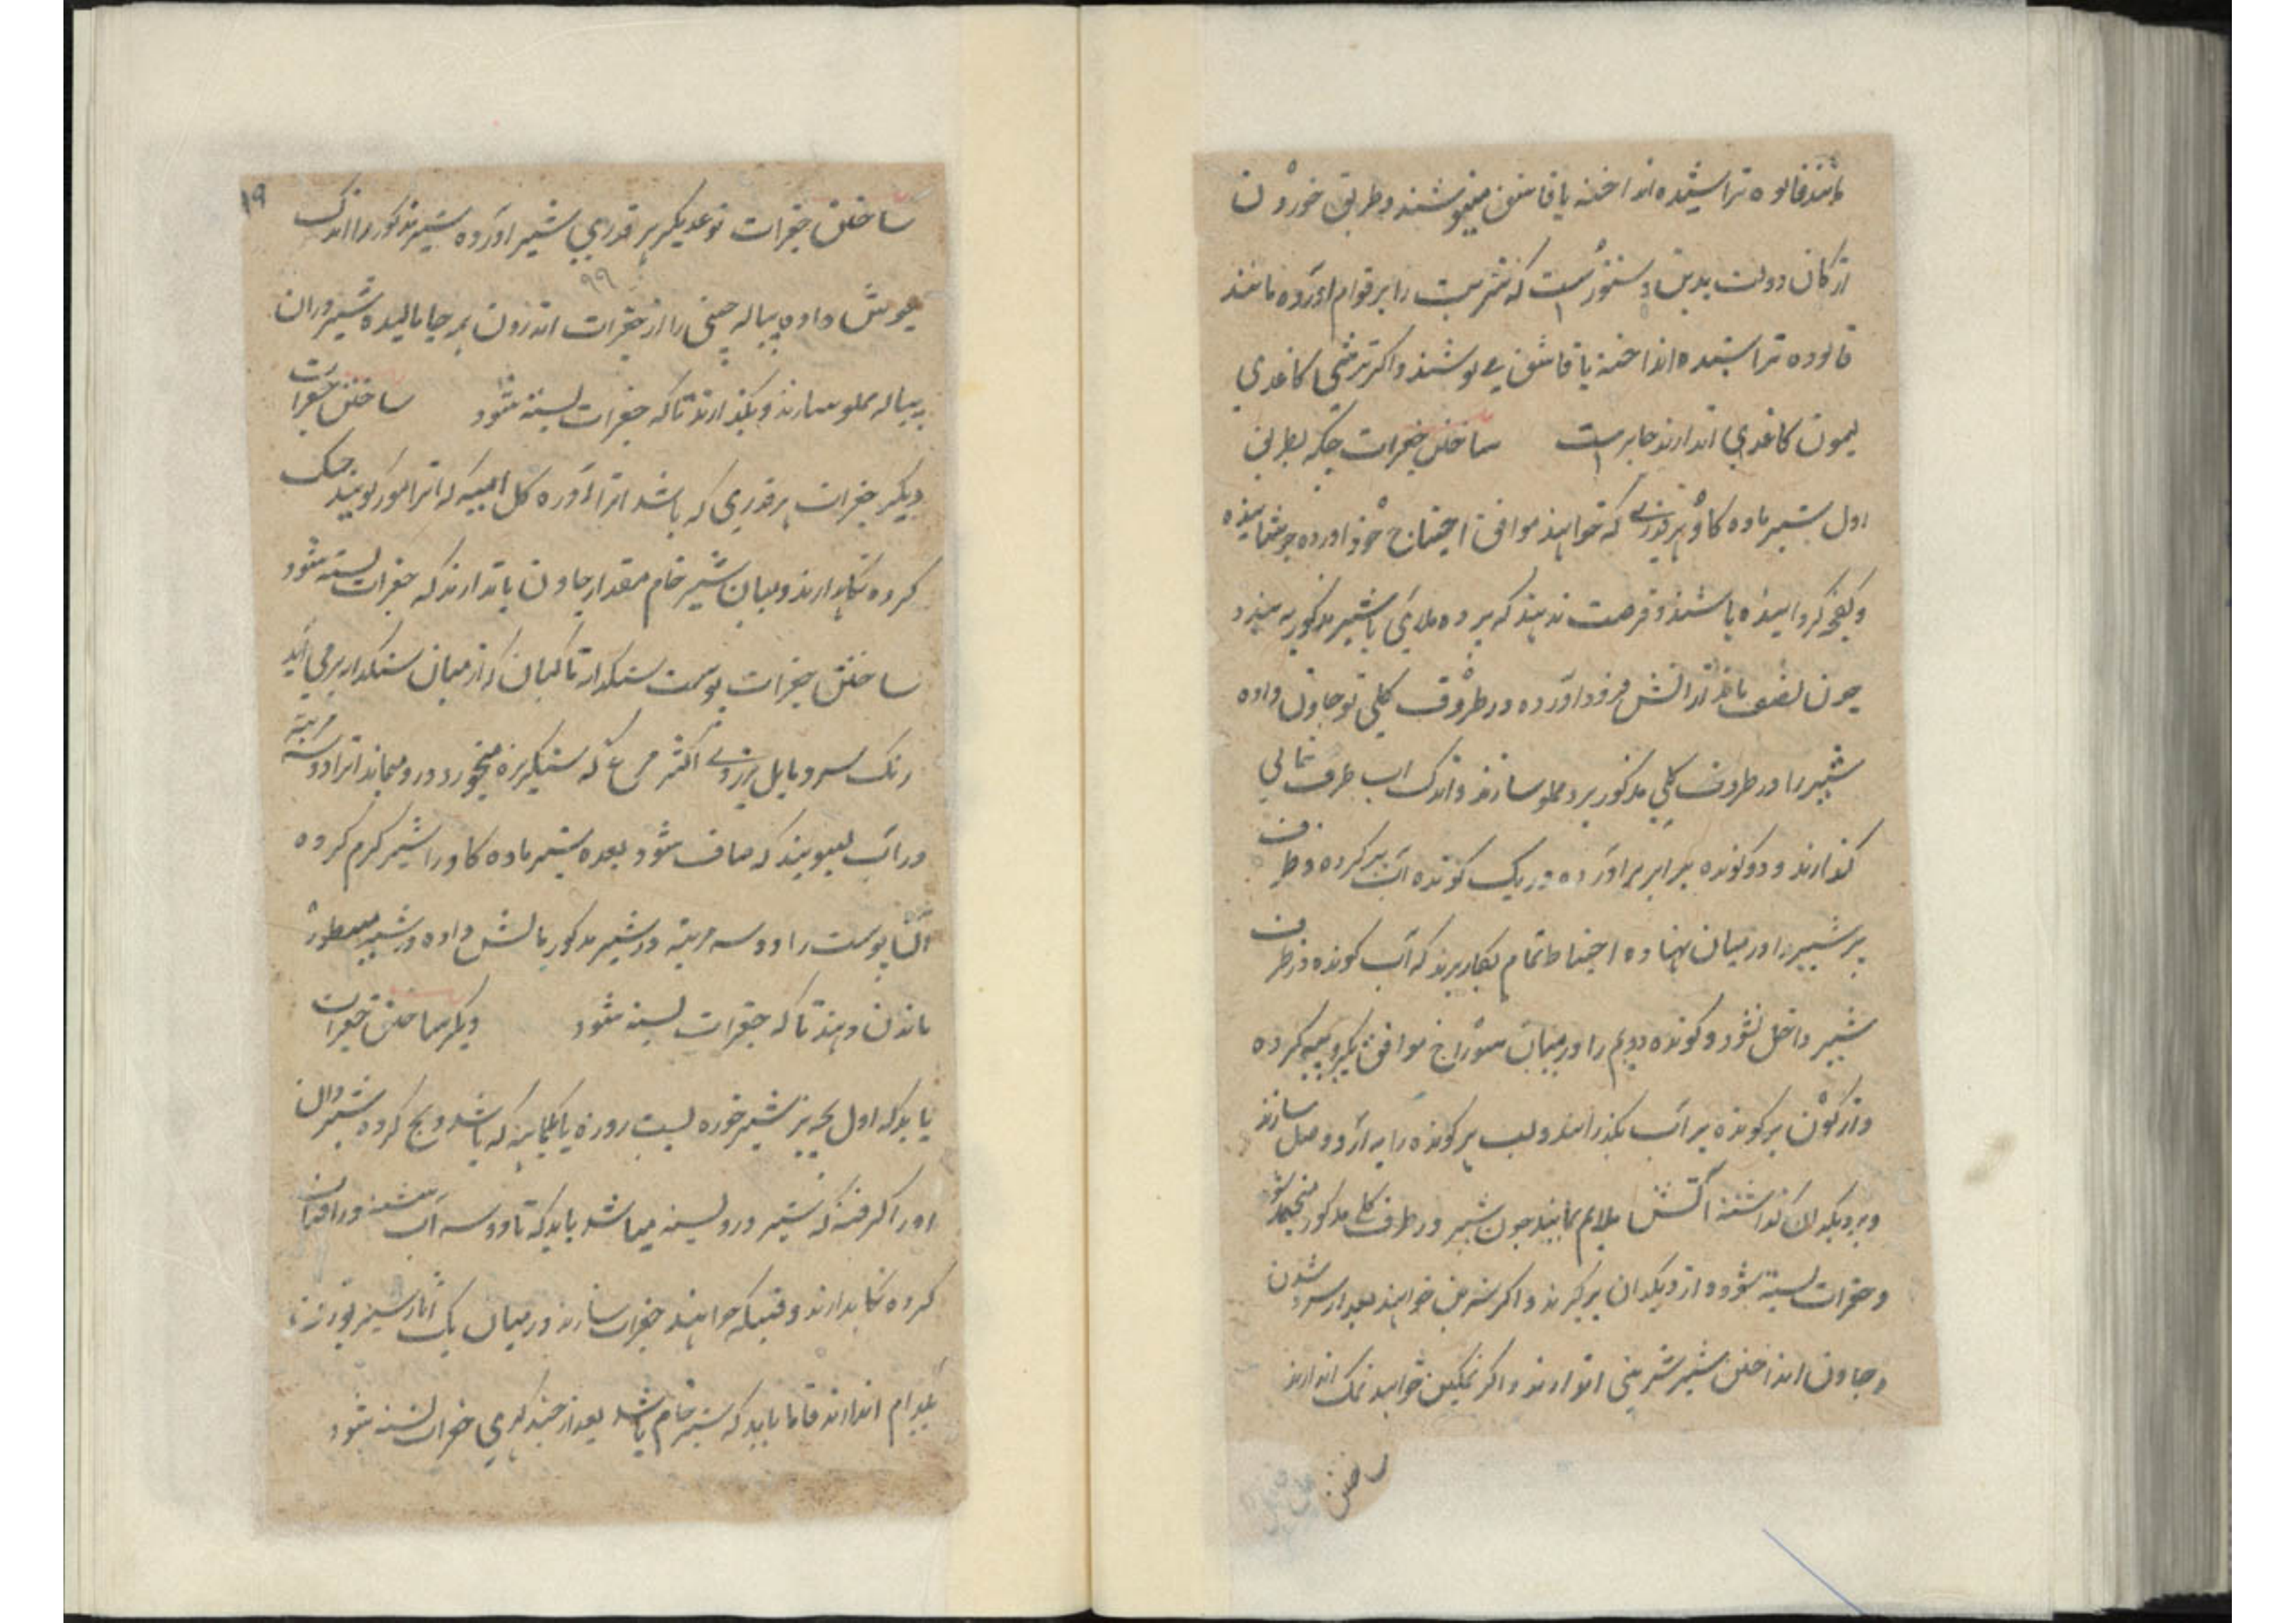 مانند فالوده تراشیده انداخته با قاشق مینوشند و طریق خوردن
ارکان دولت بدین دستورست که شربت را بر قوام آورده مانند
فالوده تراشیده انداخته با قاشق می نوشند و اکر ترشی کاغذی
لیمون کاغذی اندازند جایزست ساختن جغرات چکه بطریق
اول شیر ماده کاو هر قدری که خواهند موافق احتیاج خود آورده جوشانیده
و کفچه کردانیده باشند و فرصت ندهند که پرده ملائی با شیر مذکور به بندد
چون نصف ماند از آتش فرود آورده در ظروف کلی نو جاون داده
شیر را در ظروف کلی مذکور برده مملو سازند و اندک لب ظرف خالی
کذارند و دو کونده برابر برآورده در یک کونده آب پر کرده و ظرف
پر شیر را در میان نهاده احتیاط تمام بکار برند که آب کونده در ظرف
شیر داخل نشود و کونده دویم را در میان سوراخ موافق یکروپیه کرده
واژکون بر کونده پر آب بکذرانند و لب هر کونده را به آرد وصل سازند
و بر دیکدان کذاشته آتش ملایم نمایند چون شیر در ظرف کلی مذکور منجمد شود
و جغرات بسته شود و از دیکدان برکیرند و اکر شیرین خواهند بعد از سرد شدن
و جاون انداختن شیر شیرینی اندازند و اکر نمکین خواهند نمک اندازند
ساختن
۱۹
ساختن جغرات نوعدیکر هر قدری شیر آورده شیر مذکور را اندک
۹۹
جوش داده پیاله چینی را از جغرات اندرون هر جا مالیده شیر در آن
پیاله مملو سازند و بکذارند تا که جغرات بسته شود ساختن جغرات
دیکر جغرات هر قدری که باشد آنرا آورده کل انبه که آنرا مور کویند خشک
کرده نکاهدارند و میان شیر خام مقدار جاون باندازند که جغرات بسته شود
ساختن جغرات پوست سنکدانه ماکیان که از میان سنکدانه برمی آید
رنک سر و مایل بزردی اکثر مرغ که سنکریزه میخورد در و میماند آنرا دو سه مرتبه
در آب بشویند که صاف شود بعده شیر ماده کاو را شیر کرم کرده
آن پوست را دو سه مرتبه در شیر مذکور مالش داده در شیر مسطور
ماندن دهند تا که جغرات بسته شود دیکر ساختن جغرات
باید که اول بچه بز شیر خوره بیست روزه یا یکماهه که باشد ذبح کرده شیردان
او را کرفته که شیر درو بسته میباشد باید که تا دو سه آب شسته در آفتاب
کرده نکاهدارند وقتیکه خواهند جغرات سازند در میان یک آثار شیر بوزن
بادام اندازند فاما باید که شیر خام باشد بعد از چند کهری جغرات بسته شود